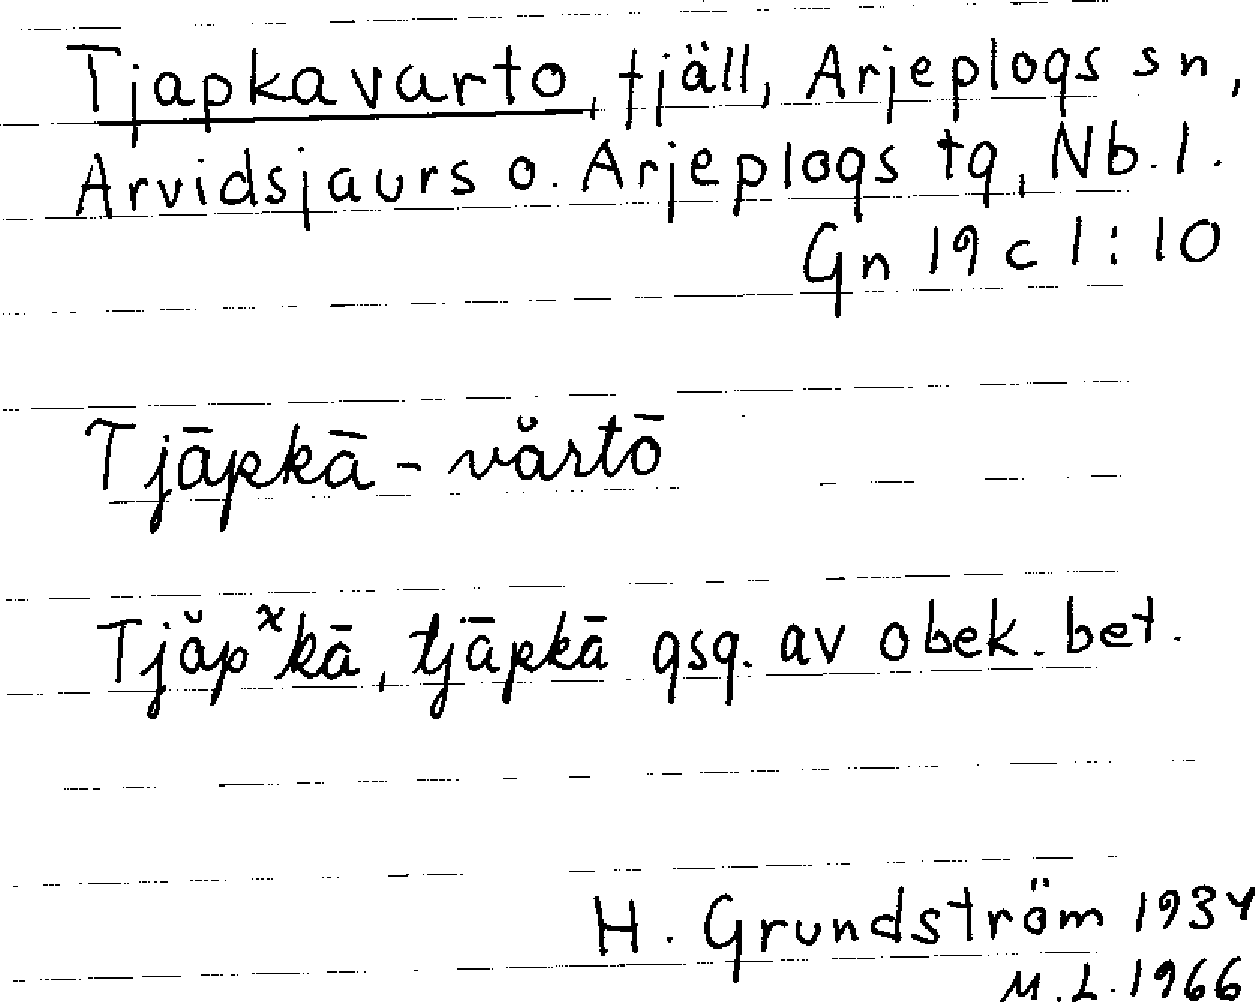 Tjapkavarto, fjäll, Arjeplogs sn,
Arvidsjaurs o. Arjeplogs tg, Nb. l.
Gn 19 c 1:10
Tjāpkā - vårtō
Tjăpˣkā, tjāpkā gsg. av obek. bet.
H. Grundström 1934
M.L. 1966